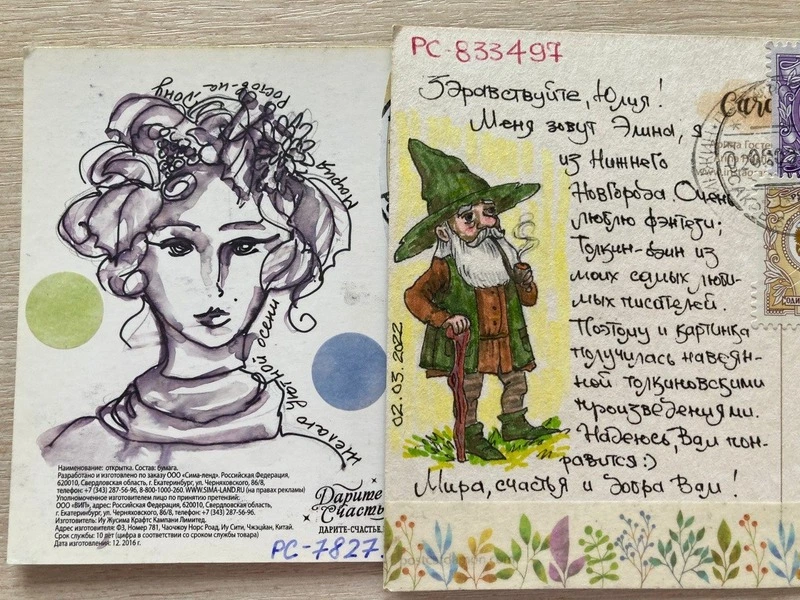 Ростов-на-Дону
Мария
Желаю уютной осени
Наименование: открытка. Состав: бумага.
Разработано и изготовлено по заказу ООО «Сима-ленд». Российская Федерация,
620010, Свердловская область, г. Екатеринбург, ул. Черняховского, 86/8,
телефон: +7 (343) 287-56-96, 8-800-1000-260. WWW.SIMA-LAND.RU (на правах рекламы)
Уполномоченное изготовителем лицо по принятию претензий:
ООО «ВИП», адрес: Российская Федерация, 620010, Свердловская область,
г. Екатеринбург, ул. Черняховского, 86/8, телефон: +7 (343) 287-56-96.
Изготовитель: Иу Жусима Крафтс Кампани Лимитед.
Адрес изготовителя: Ф3, Номер 781, Чаочжоу Норс Роад, Иу Сити, Чжэцзян, Китай.
Срок службы: 10 лет (цифра в соответствии со сроком службы товара)
Дата изготовления: 12. 2016 г.
Дарите
Счасть
ДАРИТЕ-СЧАСТЬЕ.
PC-7827
PC-833497
Здравствуйте, Юлия!
Меня зовут Элина, я
из Нижнего
Новгорода. Очень
люблю фэнтези;
Толкин - один из
моих самых люби-
мых писателей.
Поэтому и картинка
получилась навеян-
ной толкиновскими
произведениями.
Надеюсь, Вам пон-
равится :)
Мира, счастья и добра Вам!
02.03.2022